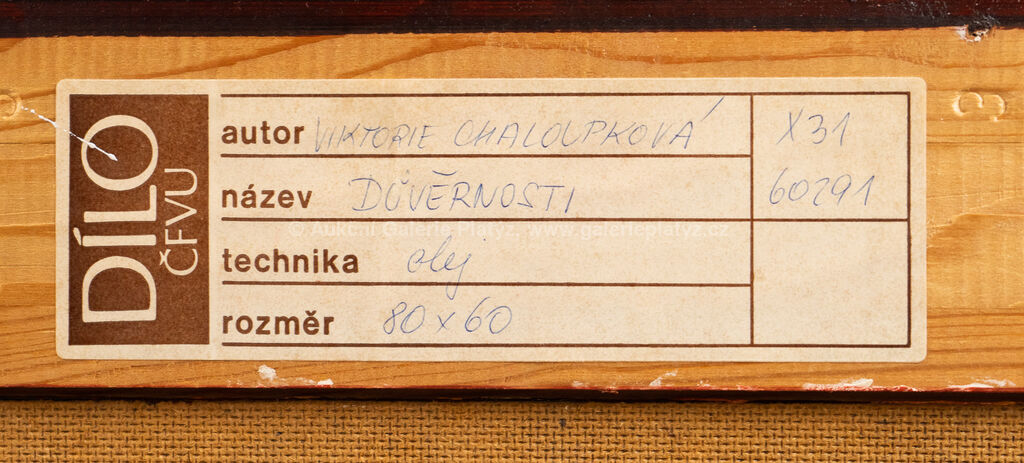 DÍLO
ČFVU
autor VIKTORIE CHALOUPKOVÁ X31
název DŮVĚRNOSTI 60291
© Aukční Galerie Platýz, www.galerieplatyz.cz
technika olej
rozměr 80 x 60
3